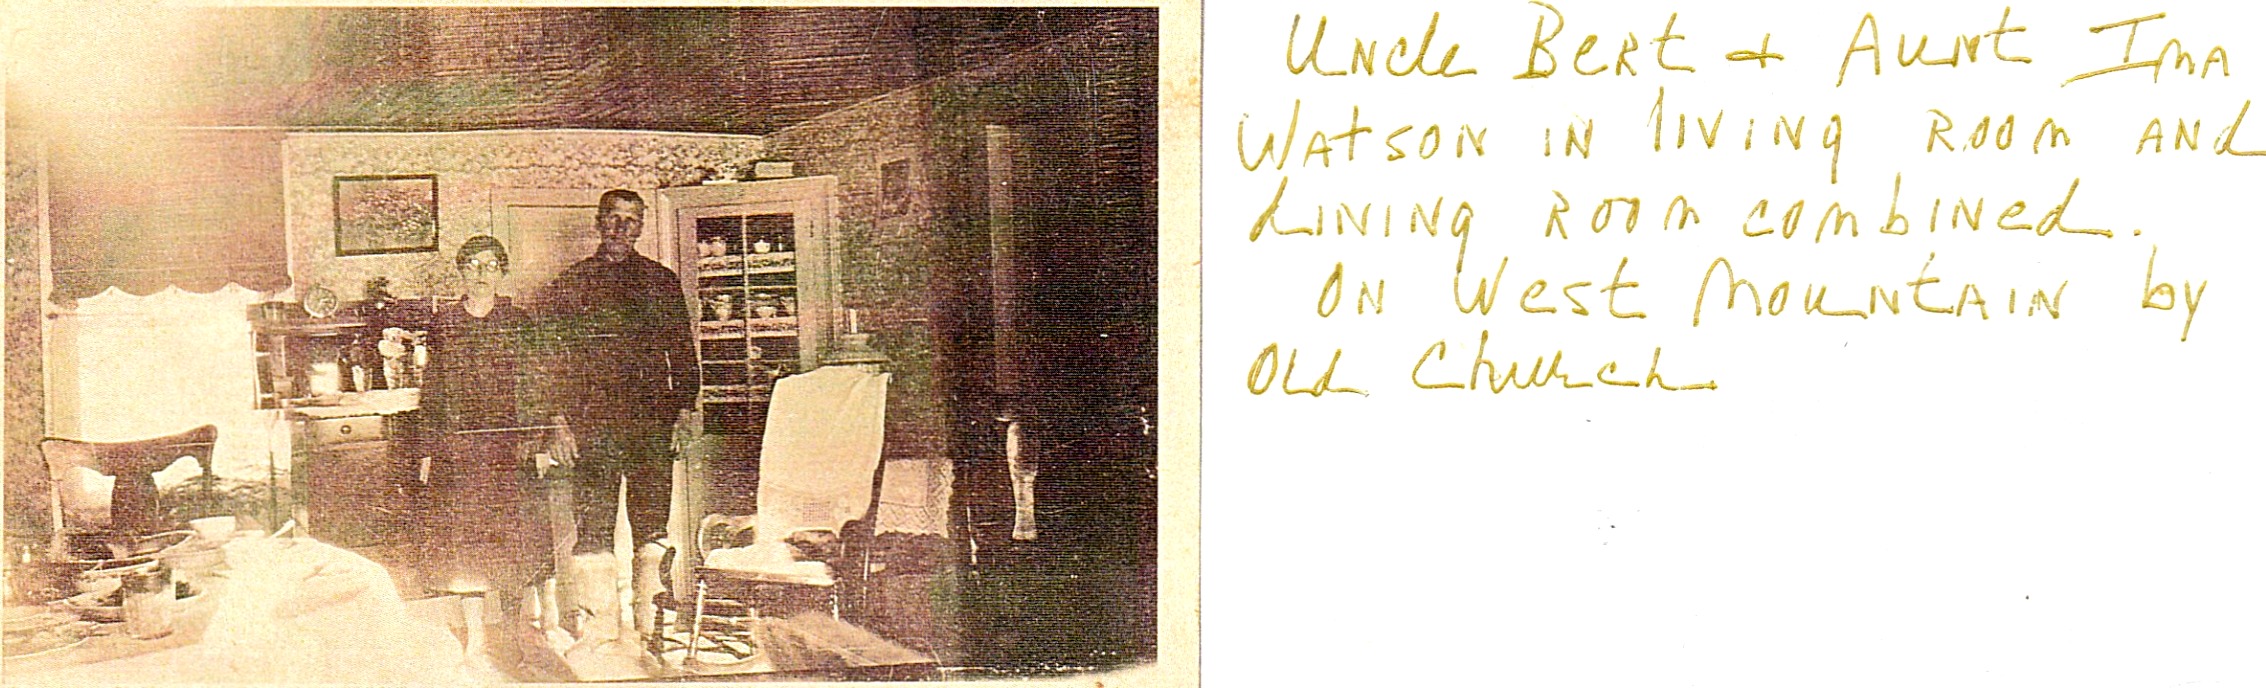 Uncle Bert + Aunt Ima
Watson in living room and
dining room combined.
On West Mountain by
Old Church